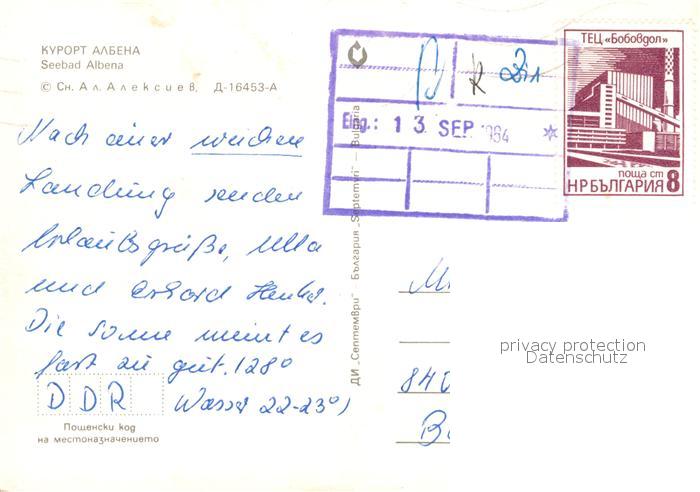 КУРОРТ АЛБЕНА
Seebad Albena
© Сн. Ал. Алексиев, Д-16453-А
Nach einer weichen
Landung senden
Urlaubsgrüße, Ulla
und Erhard
Die Sonne meint es
fast zu gut. (28°
DDR Wasser 22-23°)
Пощенски код
на местоназначението
ДИ „Септември" — България „Septemvri" — Bulgaria
Eing.: 13 SEP 1984
ТЕЦ «Бобовдол»
поща ст
НРБЪЛГАРИЯ 8
privacy protection
Datenschutz
840